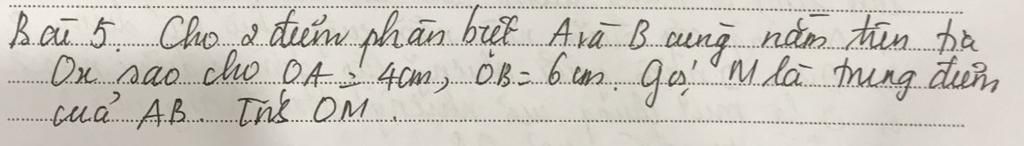 Bài 5. Cho 2 điểm phân biệt A và B cùng nằm trên tia
Ox sao cho OA = 4cm, OB = 6cm. Gọi M là trung điểm
của AB. Tính OM.